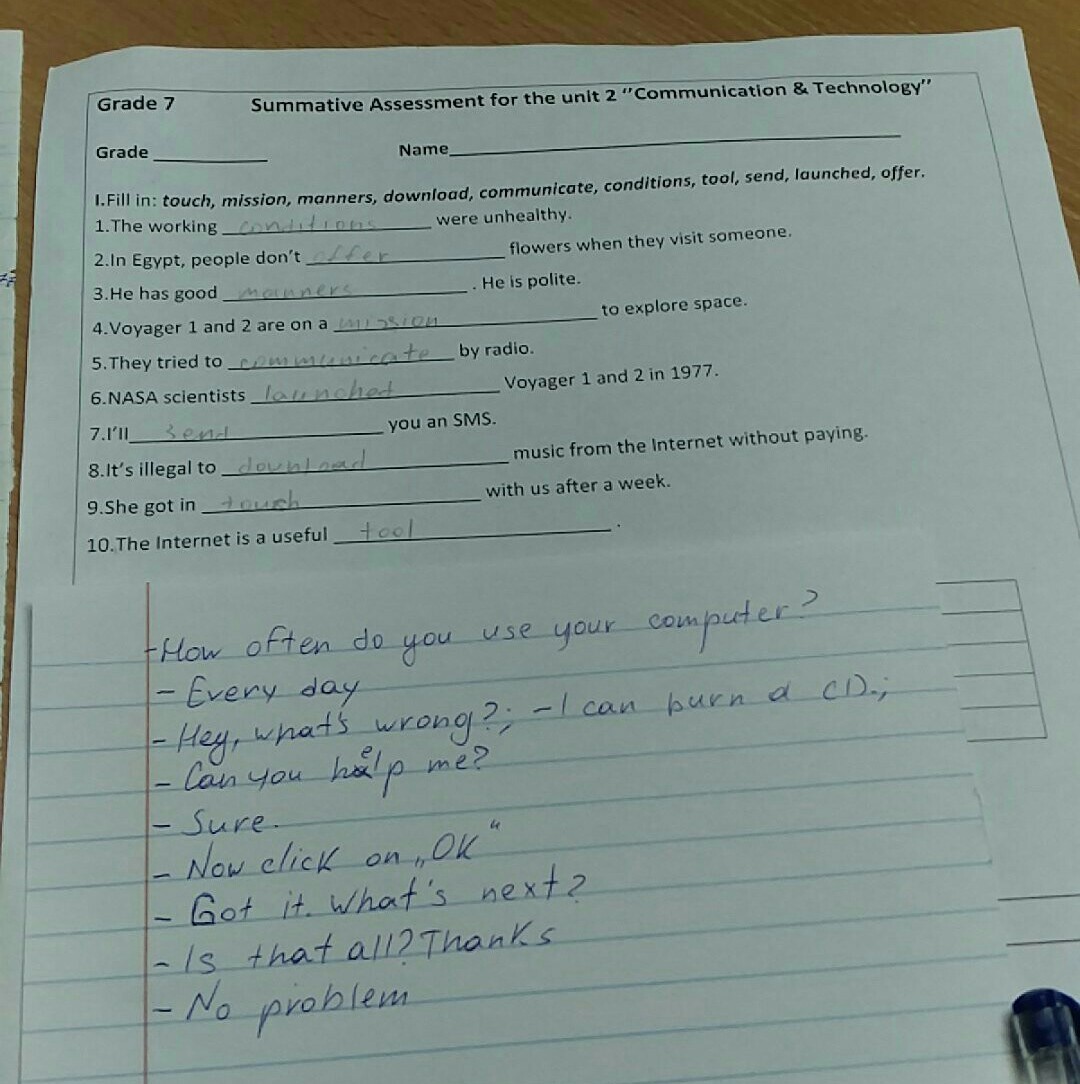 Grade 7 Summative Assessment for the unit 2 "Communication & Technology"
Grade__________ Name______________________________
I.Fill in: touch, mission, manners, download, communicate, conditions, tool, send, launched, offer.
1.The working conditions were unhealthy.
2.In Egypt, people don't offer flowers when they visit someone.
3.He has good manners . He is polite.
4.Voyager 1 and 2 are on a mission to explore space.
5.They tried to communicate by radio.
6.NASA scientists launched Voyager 1 and 2 in 1977.
7.I'll send you an SMS.
8.It's illegal to download music from the Internet without paying.
9.She got in touch with us after a week.
10.The Internet is a useful tool .
- How often do you use your computer?
- Every day
- Hey, what's wrong?; - I can burn a CD.;
- Can you help me?
- Sure.
- Now click on „OK“
- Got it. What's next?
- Is that all? Thanks
- No problem